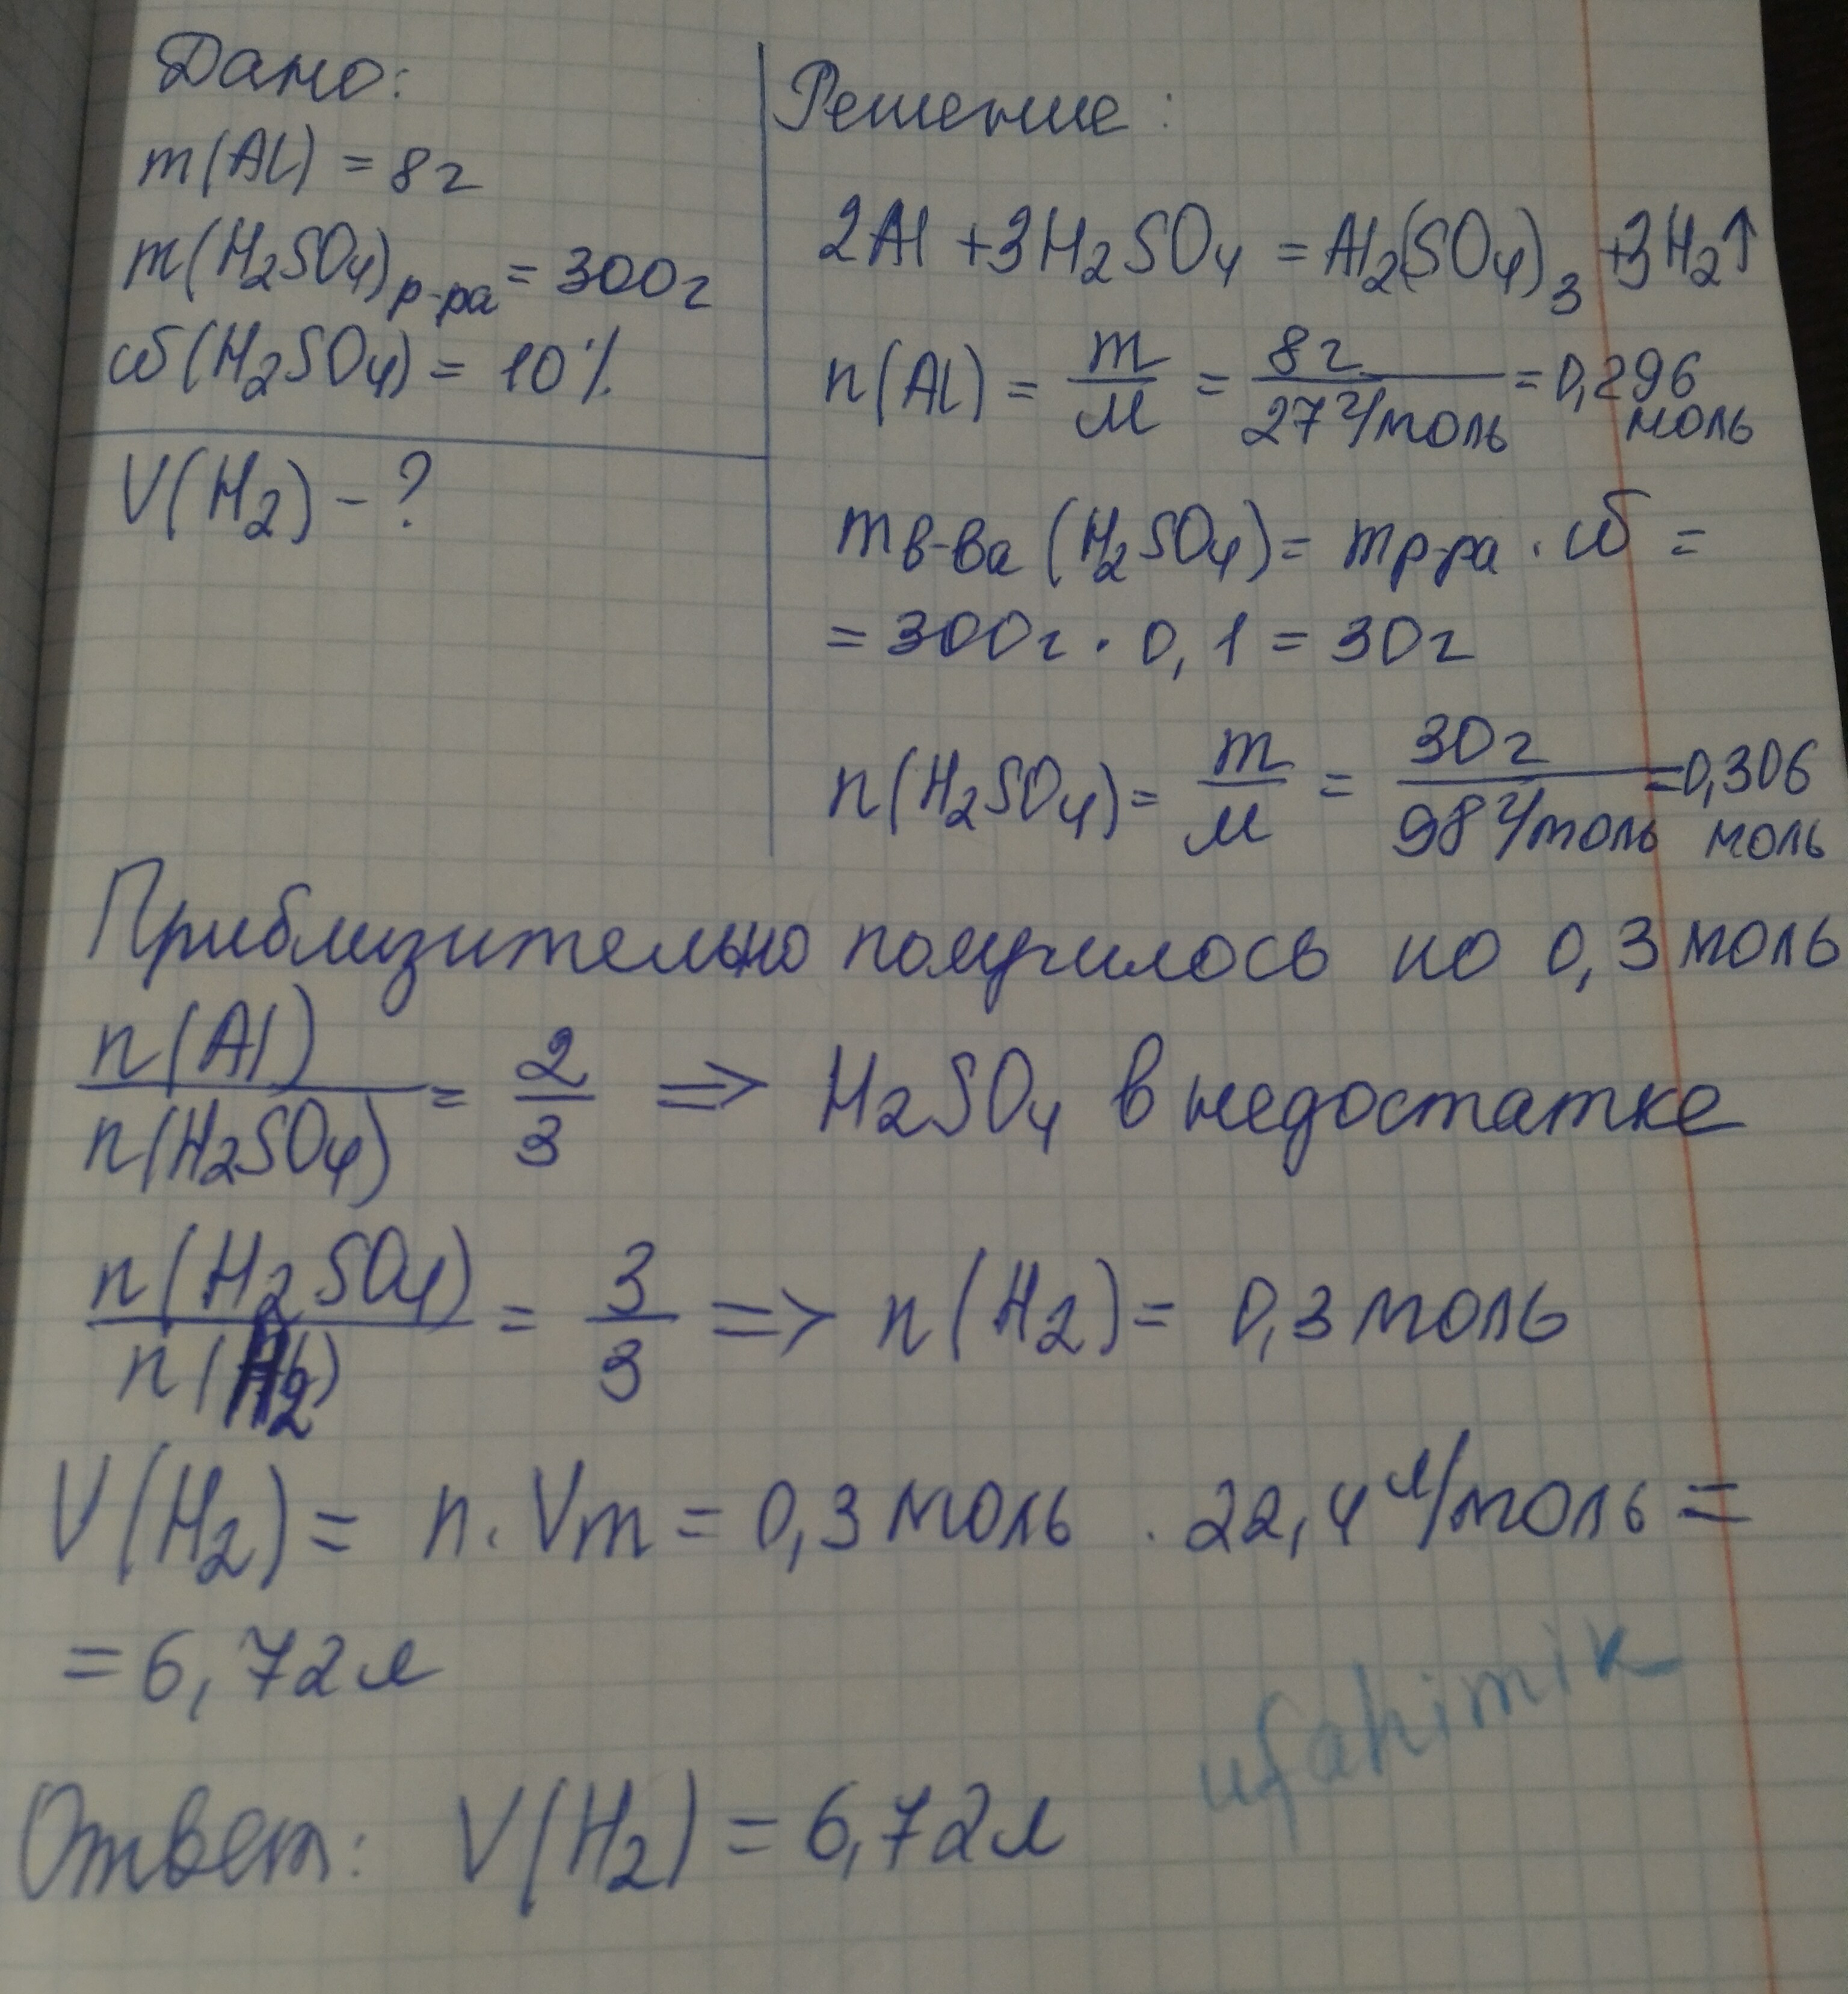 Дано:
m(Al) = 8г
m(H₂SO₄)р-ра = 300г
ω(H₂SO₄) = 10%
V(H₂) - ?
Решение:
2Al + 3H₂SO₄ = Al₂(SO₄)₃ + 3H₂↑
n(Al) = m/M = 8г/27г/моль = 0,296 моль
mв-ва (H₂SO₄) = mр-ра · ω =
= 300г · 0,1 = 30г
n(H₂SO₄) = m/M = 30г/98г/моль = 0,306 моль
Приблизительно получилось по 0,3 моль
n(Al)/n(H₂SO₄) = 2/3 => H₂SO₄ в недостатке
n(H₂SO₄)/n(H₂) = 3/3 => n(H₂) = 0,3 моль
V(H₂) = n · Vm = 0,3 моль · 22,4 л/моль =
= 6,72л
ufahimik
Ответ: V(H₂) = 6,72л